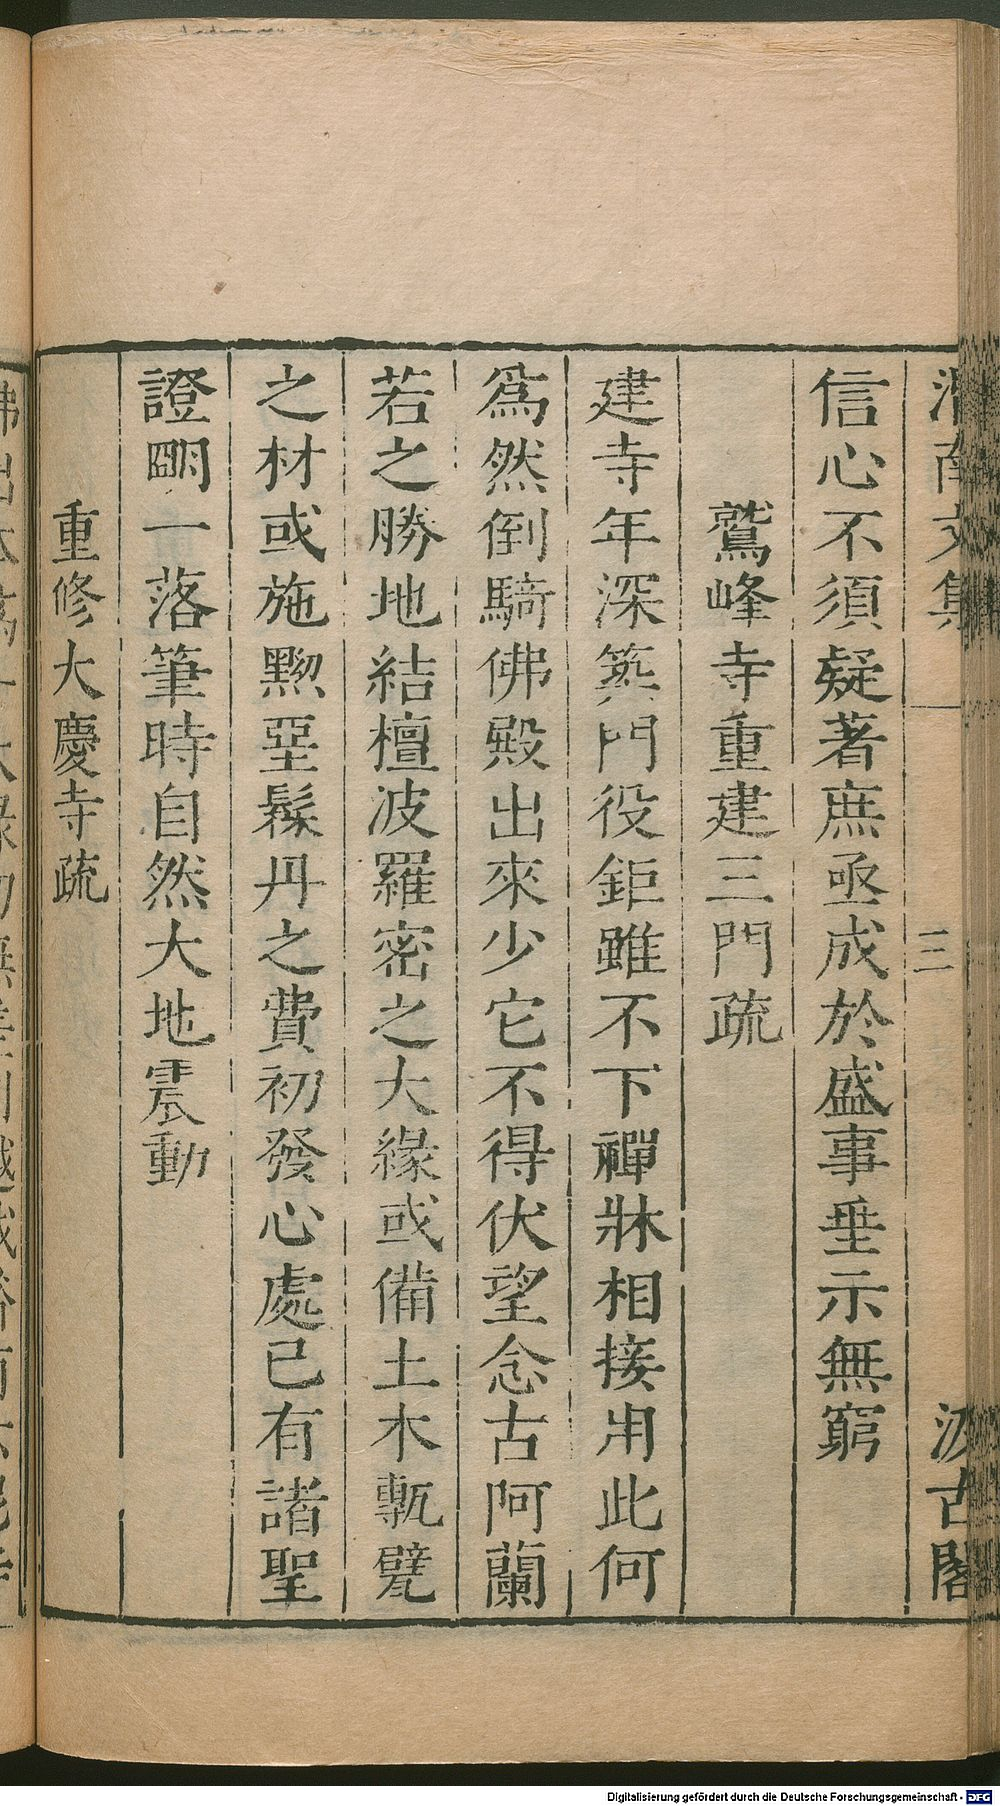 渭南文集
三
汲古閣
信心不須疑著庶亟成於盛事垂示無窮
鷲峰寺重建三門疏
建寺年深築門役鉅雖不下禪牀相接用此何
爲然倒騎佛殿出來少它不得伏望念古阿蘭
若之勝地結檀波羅密之大緣或備土木甎甓
之材或施黝堊髹丹之費初發心處已有諸聖
證明一落筆時自然大地震動
重修大慶寺疏
Digitalisierung gefördert durch die Deutsche Forschungsgemeinschaft - DFG